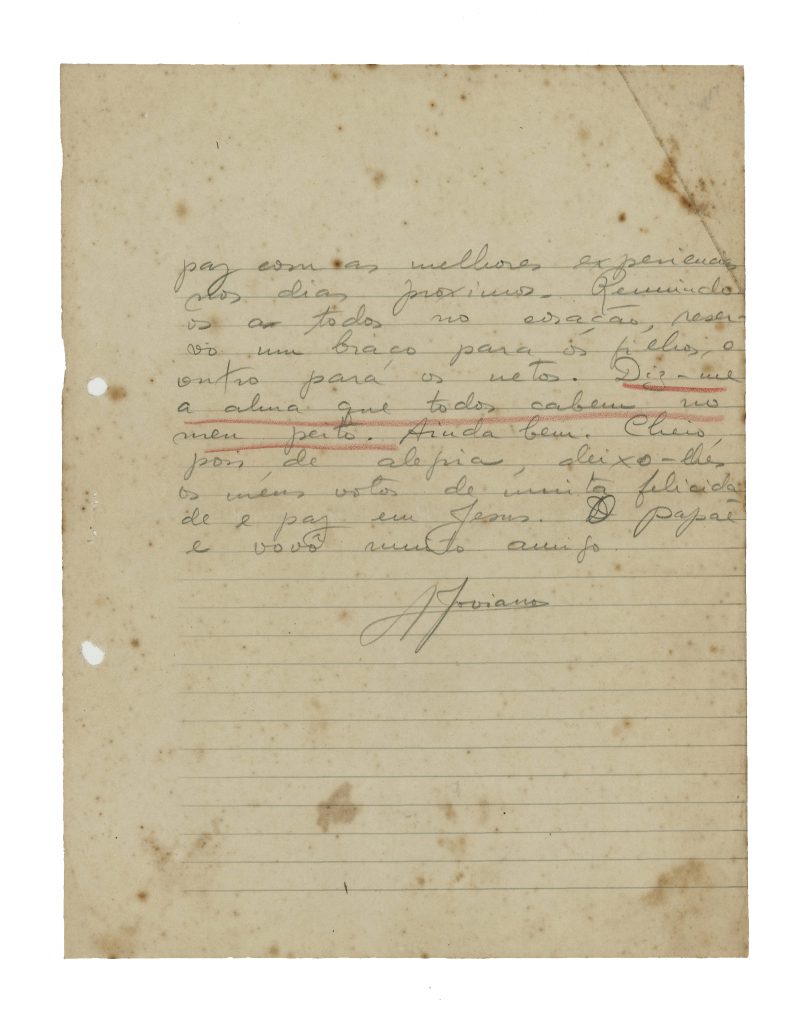 paz com as melhores experiencias
nos dias proximos. Reunindo-
os a todos no coração, reser-
vo um braço para os filhos, e
outro para os netos. Diz-me
a alma que todos cabem no
meu peito. Ainda bem. Cheio,
pois, de alegria, deixo-lhes
os meus votos de muita felicida-
de e paz em Jesus. O papae
e vovô muito amigo
A Joviano